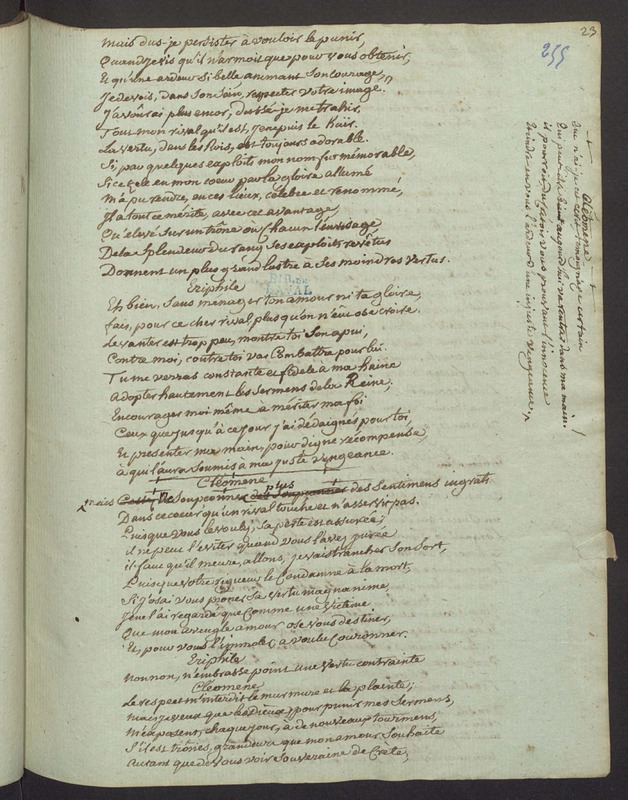 23
255
mais dus-je persister à vouloir le punir,
Quand je vis qu'il n'armoit que pour vous obtenir,
Et qu'une ardeur si belle animant son courage,
Je devois, dans son sein, respecter votre image.
J'avoûrai plus encor, dussé-je me trahir.
Tout mon rival qu'il est, je ne puis le haïr.
La vertu, dans les Rois, est toujours adorable.
Si, par quelques exploits mon nom fut mémorable,
Si ce zèle en mon coeur par la gloire allumé
M'a pu rendre, en ces lieux, célèbre et renommé,
Il a tout ce mérite, avec cet avantage,
Qu'élevé sur un trône où chacun l'envisage,
De la splendeur du rang ses exploits revêtus
Donnent un plus grand lustre à ses moindres vertus.
Eriphile
Eh bien, sans ménager ton amour ni ta gloire,
fais, pour ce cher rival, plus qu'on n'eût osé croire.
Le vanter est trop peu, montre toi son apui,
Contre moi, contre toi vas Combattre pour lui.
Tu me verras constante et fidele à ma haine
Adopter hautement les Sermens de la Reine;
Encourager moi même à mériter ma foi
Ceux que jusqu'à ce jour j'ai dédaignés pour toi,
Et presenter ma main, pour digne récompense,
à qui l'aura soumis à ma juste vengeance.
Cléomene
mais ne soupçonnez plus des sentimens ingrats
Dans ce coeur qu'un rival touche et n'asservit pas.
Puisque vous le voulez, sa perte est assurée;
il ne peut l'éviter quand vous l'avez jurée
il faut qu'il meure, allons, je vais trancher son sort,
Puisque votre rigueur le Condamne à la mort,
Si j'osai vous proner sa vertu magnanime,
Je ne l'ai regardé que Comme une victime
Que mon aveugle amour ose vous destiner,
Et, pour vous l'immoler, a voulu Couronner.
Eriphile
non non, n'embrasse point une vertu contrainte
Cléomene
Le respect m'interdit le murmure et la plainte;
mais je veux que les dieux, pour punir mes Sermens,
M'exposent, chaque jour, à de nouveaux tourmens,
S'il est trônes, grandeurs que mon amour souhaite
autant que de vous voir Souveraine de Crète,
Cléomene
qui n'ai-je pas
aujourd'hui remettras dans ma main.
il pourroit vous l'innocence
l'ardeur d'une injuste vengeance,